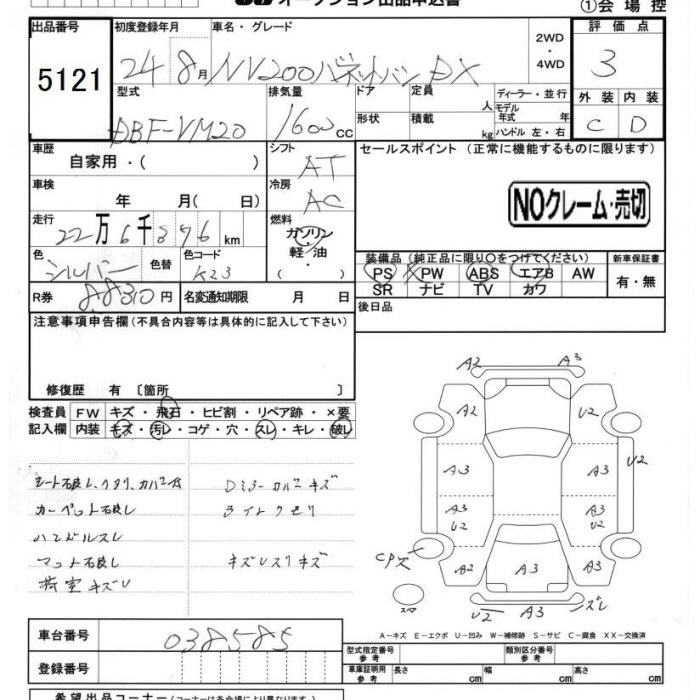 オークション出品申込書
①会場控
出品番号
5121
初度登録年月
車名・グレード
2WD
・
4WD
評価点
3
24 8月 NV200バネットバン DX
外装 内装
C D
型式
排気量
ドア
定員
人
ディーラー・並行
モデル年式 年
DBF-VM20
1600cc
形状
積載
kg
ハンドル 左・右
車歴
自家用・( )
シフト
AT
セールスポイント (正常に機能するものに限ります)
車検
年 月( 日)
冷房
AC
NOクレーム・売切
走行
22万6千876km
燃料
ガソリン
軽・油
・( )
色
シルバー
色替
色コード
K23
装備品 (純正品に限り○をつけてください)
新車保証書
PS PW ABS エアB AW
SR ナビ TV カワ
有・無
R券
88310円
名変通知期限 月 日
後日品
注意事項申告欄 (不具合内容等は具体的に記入して下さい)
修復歴 有 〔箇所 〕
検査員記入欄
FW キズ・飛石・ヒビ割・リペア跡・×要
内装 キズ・汚レ・コゲ・穴・スレ・キレ・破レ
カーペット破レ
ハンドルスレ
マット破レ
荷室キズU
Dミラーカバーキズ
ライトクモリ
A2 A3
A2 U2
A3 A3 U2
A3 U2 A3 U2
A2 A3 A3
U2 A3 ズレ
A-キズ E-エクボ U-凹み W-補修跡 S-サビ C-腐食 XX-交換済
車台番号
038585
登録番号
型式指定番号 参考
類別区分番号 参考
車庫証明用 参考
長さ cm 幅 cm 高さ cm
希望出品コーナー (コーナーは各会場により異なります)